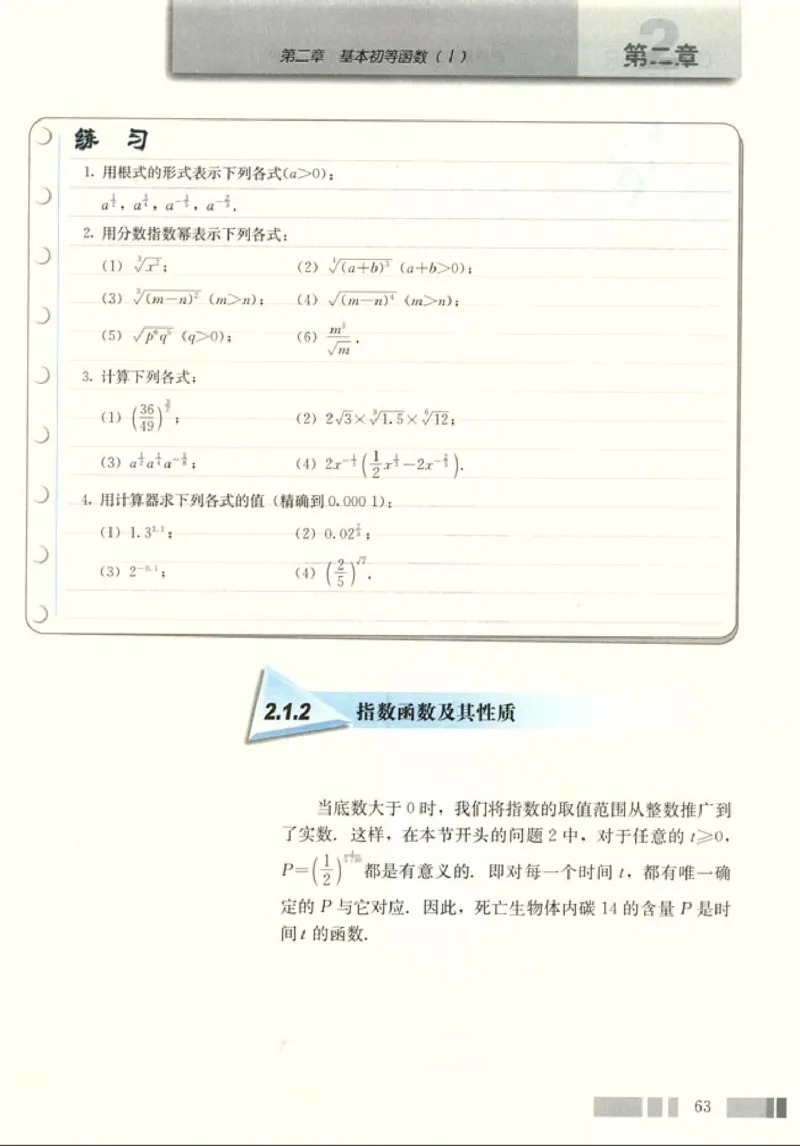 第二章 基本初等函数（Ⅰ）
第二章
练 习
1. 用根式的形式表示下列各式(a>0)：
a^{1/2}，a^{3/4}，a^{-3/5}，a^{-2/3}.
2. 用分数指数幂表示下列各式：
(1) ∛(x²)； (2) ∜((a+b)³) (a+b>0)；
(3) ∛((m−n)²) (m>n)； (4) √((m−n)⁴) (m>n)；
(5) √(p⁶q⁵) (q>0)； (6) m³/√m.
3. 计算下列各式：
(1) (36/49)^{3/2}； (2) 2√3×∛1.5×⁶√12；
(3) a^{1/2}a^{1/4}a^{-1/8}； (4) 2x^{-1/3}(1/2 x^{1/3}−2x^{-2/3}).
4. 用计算器求下列各式的值（精确到0.000 1）：
(1) 1.3^{2.1}； (2) 0.02^{2/3}；
(3) 2^{-0.1}； (4) (2/5)^{√7}.
2.1.2 指数函数及其性质
当底数大于0时，我们将指数的取值范围从整数推广到
了实数. 这样，在本节开头的问题2中，对于任意的t≥0，
P=(1/2)^{t/5730}都是有意义的. 即对每一个时间t，都有唯一确
定的P与它对应. 因此，死亡生物体内碳14的含量P是时
间t的函数.
63